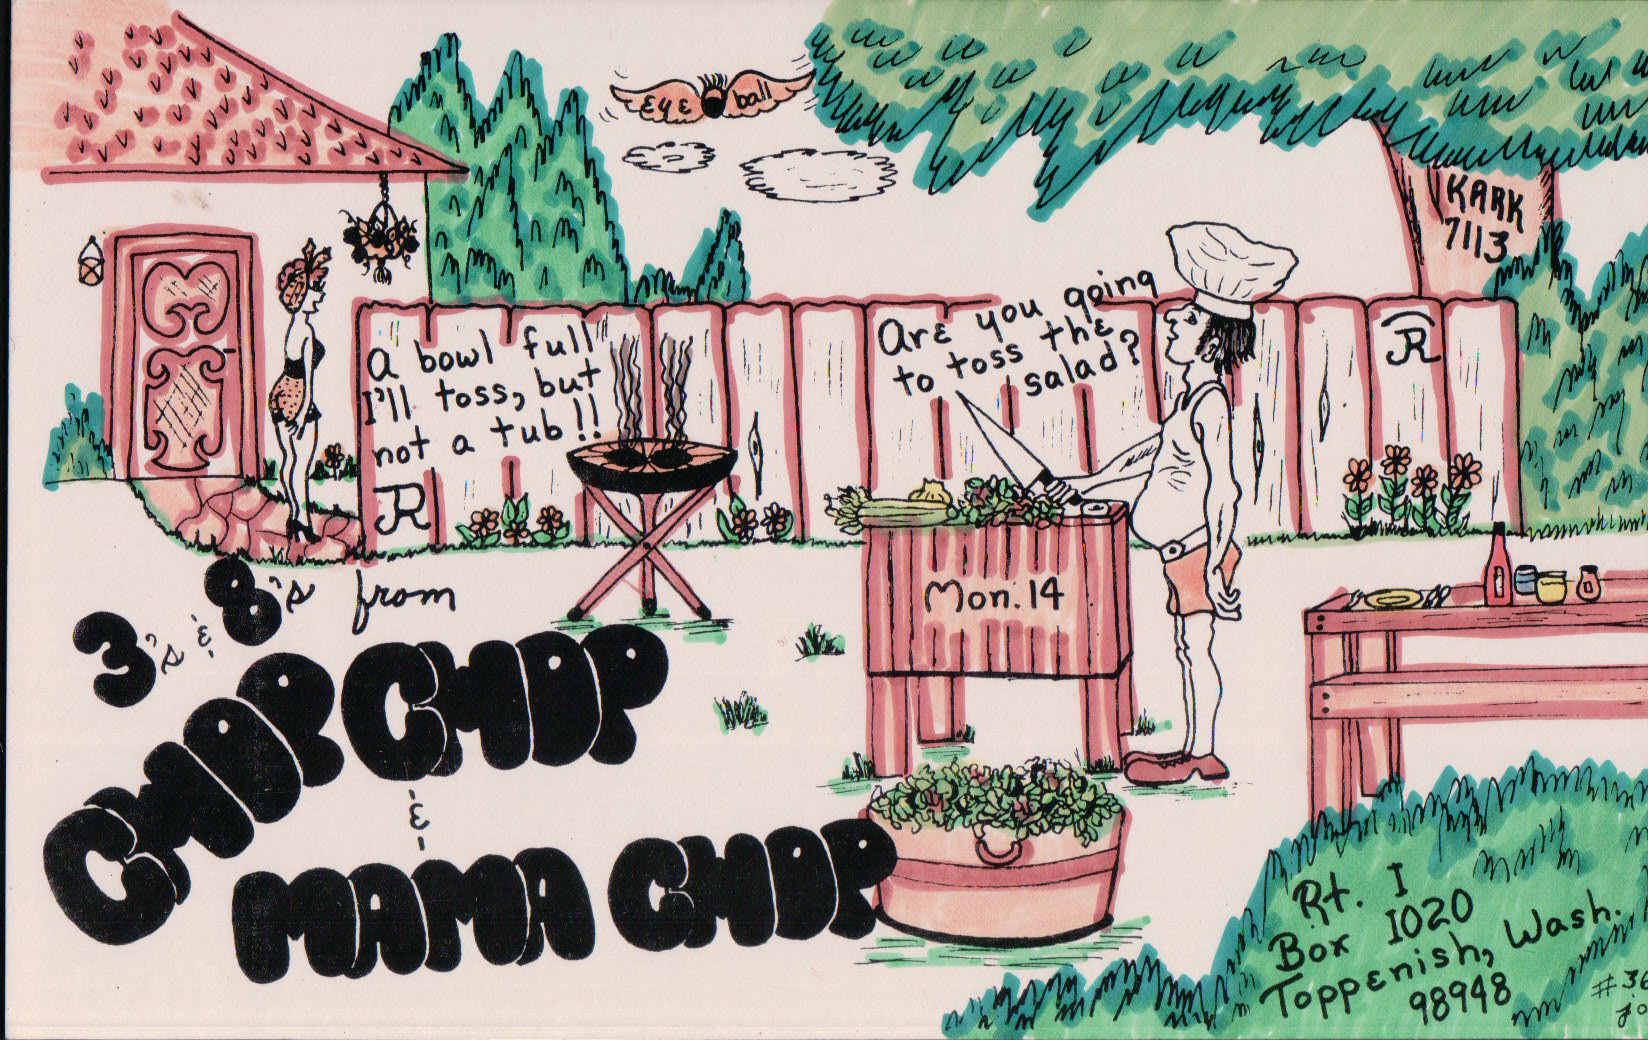 EYE ball
KARK
7113
Are you going
to toss the
salad?
A bowl full
I'll toss, but
not a tub!!
R
R
Mon. 14
3's & 8's from
CHOP CHOP
&
MAMA CHOP
Rt. 1
Box 1020
Toppenish, Wash.
98948
#36